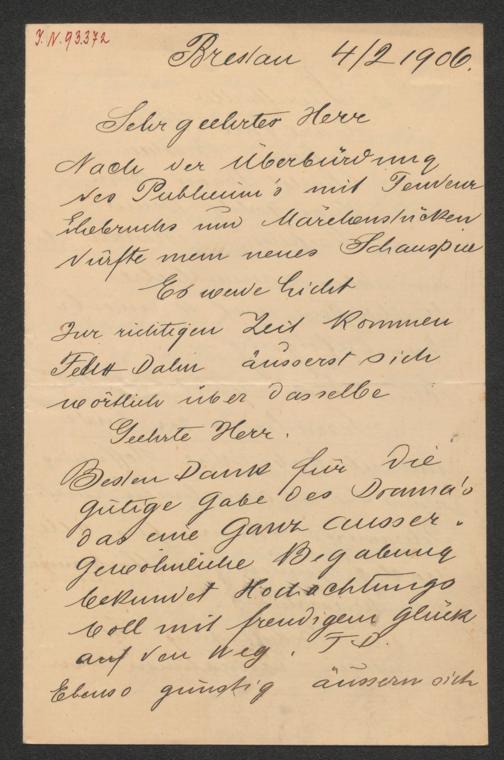 J.N. 93.372
Breslau 4/2 1906.
Sehr geehrter Herr
Nach der Überbürdung
des Publicum's mit
Ehebruchs und Märchenstücken
dürfte mein neues Schauspiel
Es werde Licht
zur richtigen Zeit kommen
Felix Dahn äussert sich
wörtlich über dasselbe
Geehrte Herr.
Besten Dank für die
gütige Gabe des Drama's
das eine ganz ausser-
gewöhnliche Begabung
bekundet Hochachtungs
voll mit freudigem Glück
auf den Weg. F. D.
Ebenso günstig äussern sich